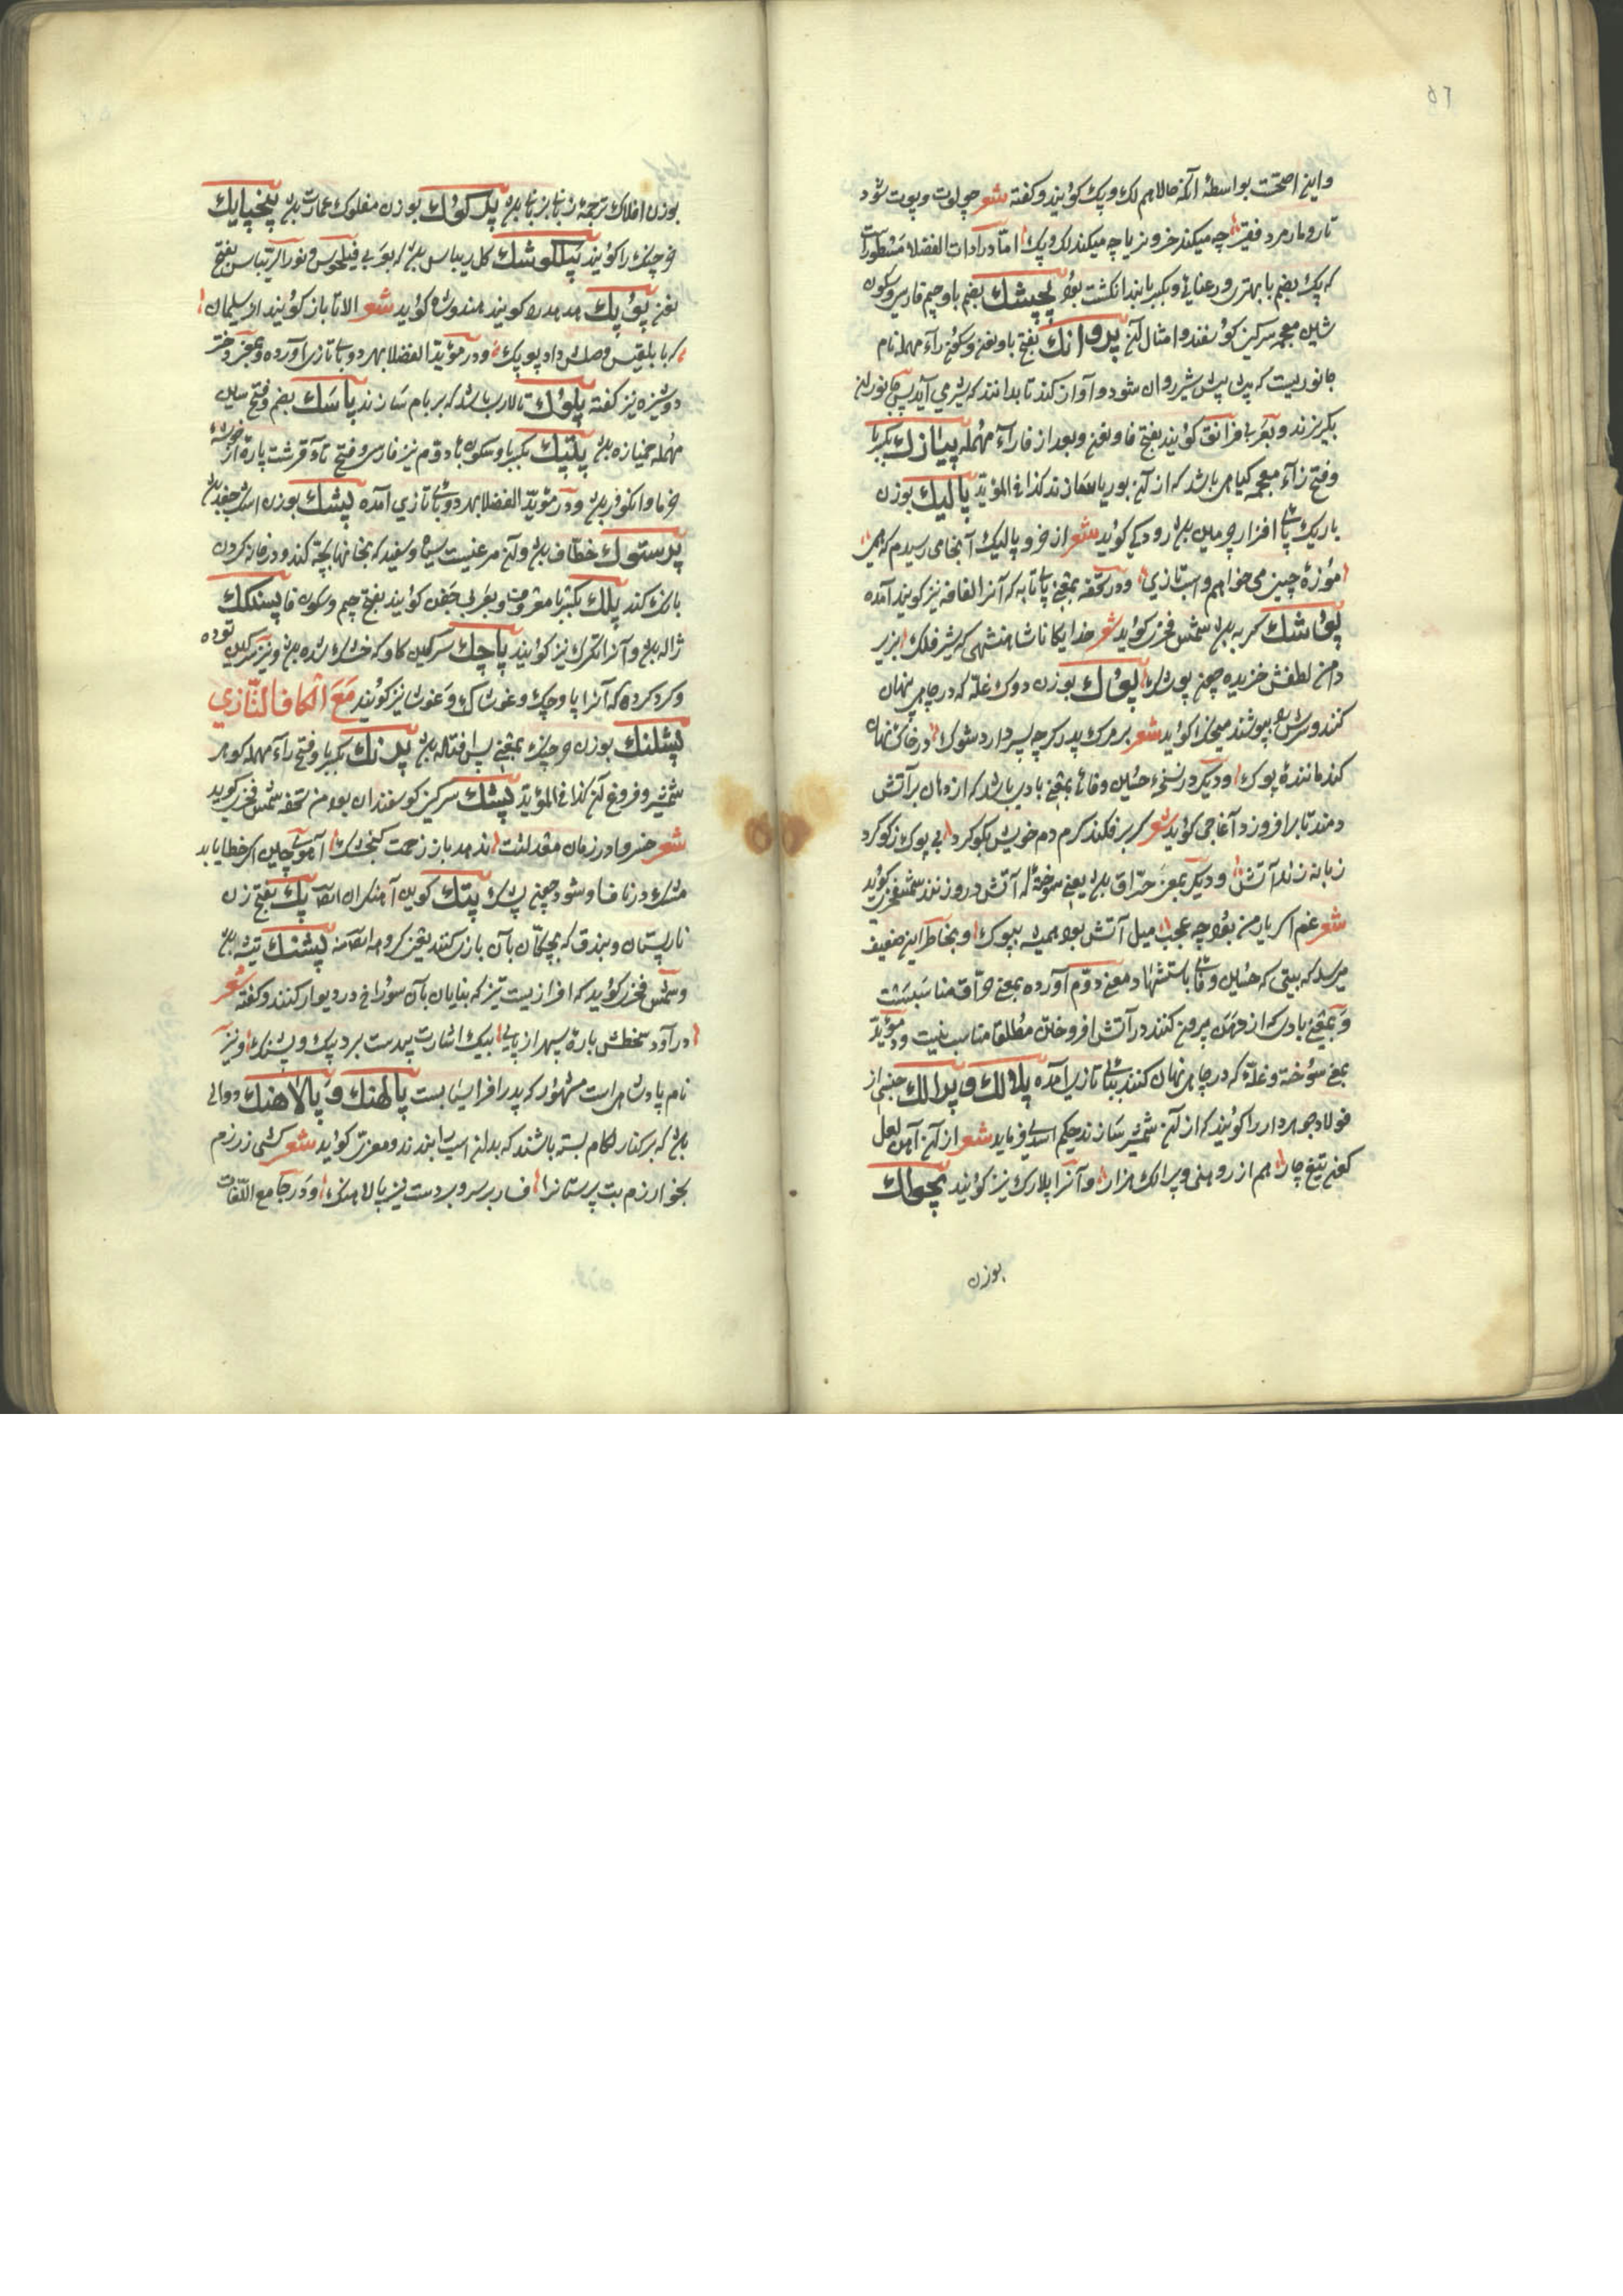 ٥٦
واین اصحّت بواسطهٔ آنکه حالا هم لک و پک کویند و کفته شعر چو لوت و پوت شود
تار و مار مرد فقیر چه میکند خر و نر یا چه میکند لک و پک امّا در ادات الفضلا مسطور است
که پک بضم با بهتری و رعنایی و بکسر با بند انکشت بود پچپشك بضم با و جیم فارسی و سکون
شین معجمه سرکین کوسفند و امثال آن پروانك بفتح با و نون و سکون رآء مهمله نام
جانوریست که پیش پیش شیر روان شود و آواز کند تا بدانند که شیر می آید پس جانوران
بکریزند و بعربی فرانق کویند بفتح فا و نون و بعد از فا رآء مهمله پیازك بکسر با
وفتح زآء معجمه کیاهی باشد که از آن بوریا سازند کذا فی المؤید پالیك بوزن
باریک پای افزار چرمین بود رودکی کوید شعر از خر و پالیک آنجای رسیدم که همی
موزهٔ چینی می خواهم و اسب تازی و در تحفه بمعنی پاتابه که آنرا لفافه نیز کویند آمده
پوشك کربه بود شمس فخری کوید شعر خدایکانا شاهنشهی که شیر فلک بزیر
دامن لطفش خزیده چون پوشک پوك بوزن دوک غلّه که در چاهی پنهان
کنند و سرش بپوشند میخک کوید شعر بر مرک پدر کرچه پسر دارد سوک در خاک نهان
کند مانندهٔ پوک و دیکر در نسخهٔ حسین وفائی بمعنی بادی باشد که از دهان بر آتش
دمند تا برافروزد آغاجی کوید شعر کر برفکند کرم دم خویش بکوکرد بی پوک ز کوکرد
زبانه زند آتش و دیکر بمعنی حرّاق بود یعنی سوخته که آتش درو زنند شمس فخری کوید
شعر غم اکر یار من بود چه عجب میل آتش بود همیشه بپوک و بخاطر این ضعیف
میرسد که بیتی که حسین وفائی باستشهاد معنی دوّم آورده بمعنی حرّاق مناسبست
و بمعنی بادی که از دهن بیرون کنند در آتش افروختن مطلقا مناسب نیست و در مؤید
بمعنی سوخته و غلّه که در چاهی نهان کنند ببای تازی آمده پلالك و پرالك جنسی از
فولاد جوهردار را کویند که از آن شمشیر سازند حکیم اسدی فرماید شعر از آن آهن لعل
کون تیغ چار هم از روهنی و پرالک هزار و آنرا پلارک نیز کویند پچواك
بوزن
بوزن افلاک ترجمهٔ زبانی بزبانی بود پرکوك بوزن مفلوک عمارت بود پنچپایك
خرچنک را کویند پیلکوشك کل ریباس بود که بعربی فیلجوس و نور الریباس بفتح
نون پوپك هدهد را کویند هندوشاه کوید شعر الا تا باز کویند از سلیمان
که با بلقیس وصلش داد پوپک و در مؤید الفضلا بهر دو بای تازی آورده و بمعنی دختر
دوشیزه نیز کفته پلوك تالاری باشد که بر بام سازند پاسك بضم و فتح سین
مهمله خمیازه بود پلپتك بکسر با و سکون بای دوّم نیز فارسی و فتح تآء قرشت پاره از خوشهٔ
خرما و انکور بود و در مؤید الفضلا بهر دو بای تازی آمده پشك بوزن اشک جغد بود
پرستوك خطّاف بود و آن مرغیست سیاه و سفید که بخانها بچّه کند و در خانه کردن
بانک کند پلك بکسر با معروفست و بعربی جفن کویند بفتح جیم و سکون فا پسنکك
ژاله بود و آنرا تکرک نیز کویند پاچك سرکین کاو که خشک شده بود و نیز سرکین توده
و کرد کرده که آنرا پاوچک و غوشاک و غوشا نیز کویند مع الکاف التّازی
پشلنك بوزن خرچنک بمعنی پس افتاده بود پرنك بکسر با و فتح رآء مهمله کوهر
شمشیر و فروغ آن کذا فی المؤید پشك سرکین کوسفندان بود من تحفه شمس فخری کوید
شعر خسروا در زمان معدلتت ندهد باز زحمت کنجشک آهوی چین اکر خطا یابد
مشک در ناف او شود چون پشک پتك کوین آهنکران ایضا پك بفتح زن
نارپستان و بندق که بچکان بآن بازی کنند یعنی کروهه ایضا منه پشنك تیشه بود
و شمس فخری کوید که افزاریست تیز که بنایان بآن سوراخ در دیوار کنند و کفته شعر
درآورد سخطش بارهٔ سپهر از پای بیک اشارت بی دست برد پیک و پشنک و نیز
نام پادشاهی است مشهور که پدر افراسیابست پالهنك و پالاهنك دوالی
بود که بر کنار لکام بسته باشند که بدان اسب را بندند و معزی کوید شعر کشی ز رزم
بخوارزم بت پرستانرا فسار بر سر و بر دست نیز پالاهنک و در جامع اللّغات